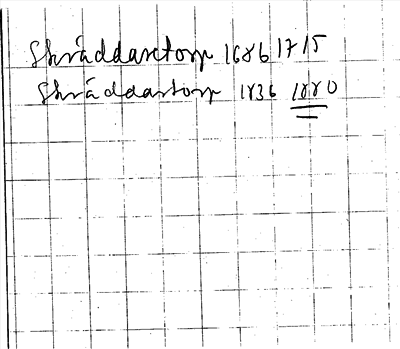 Skräddaretorp 1686 1715
Skräddartorp 1836 1880